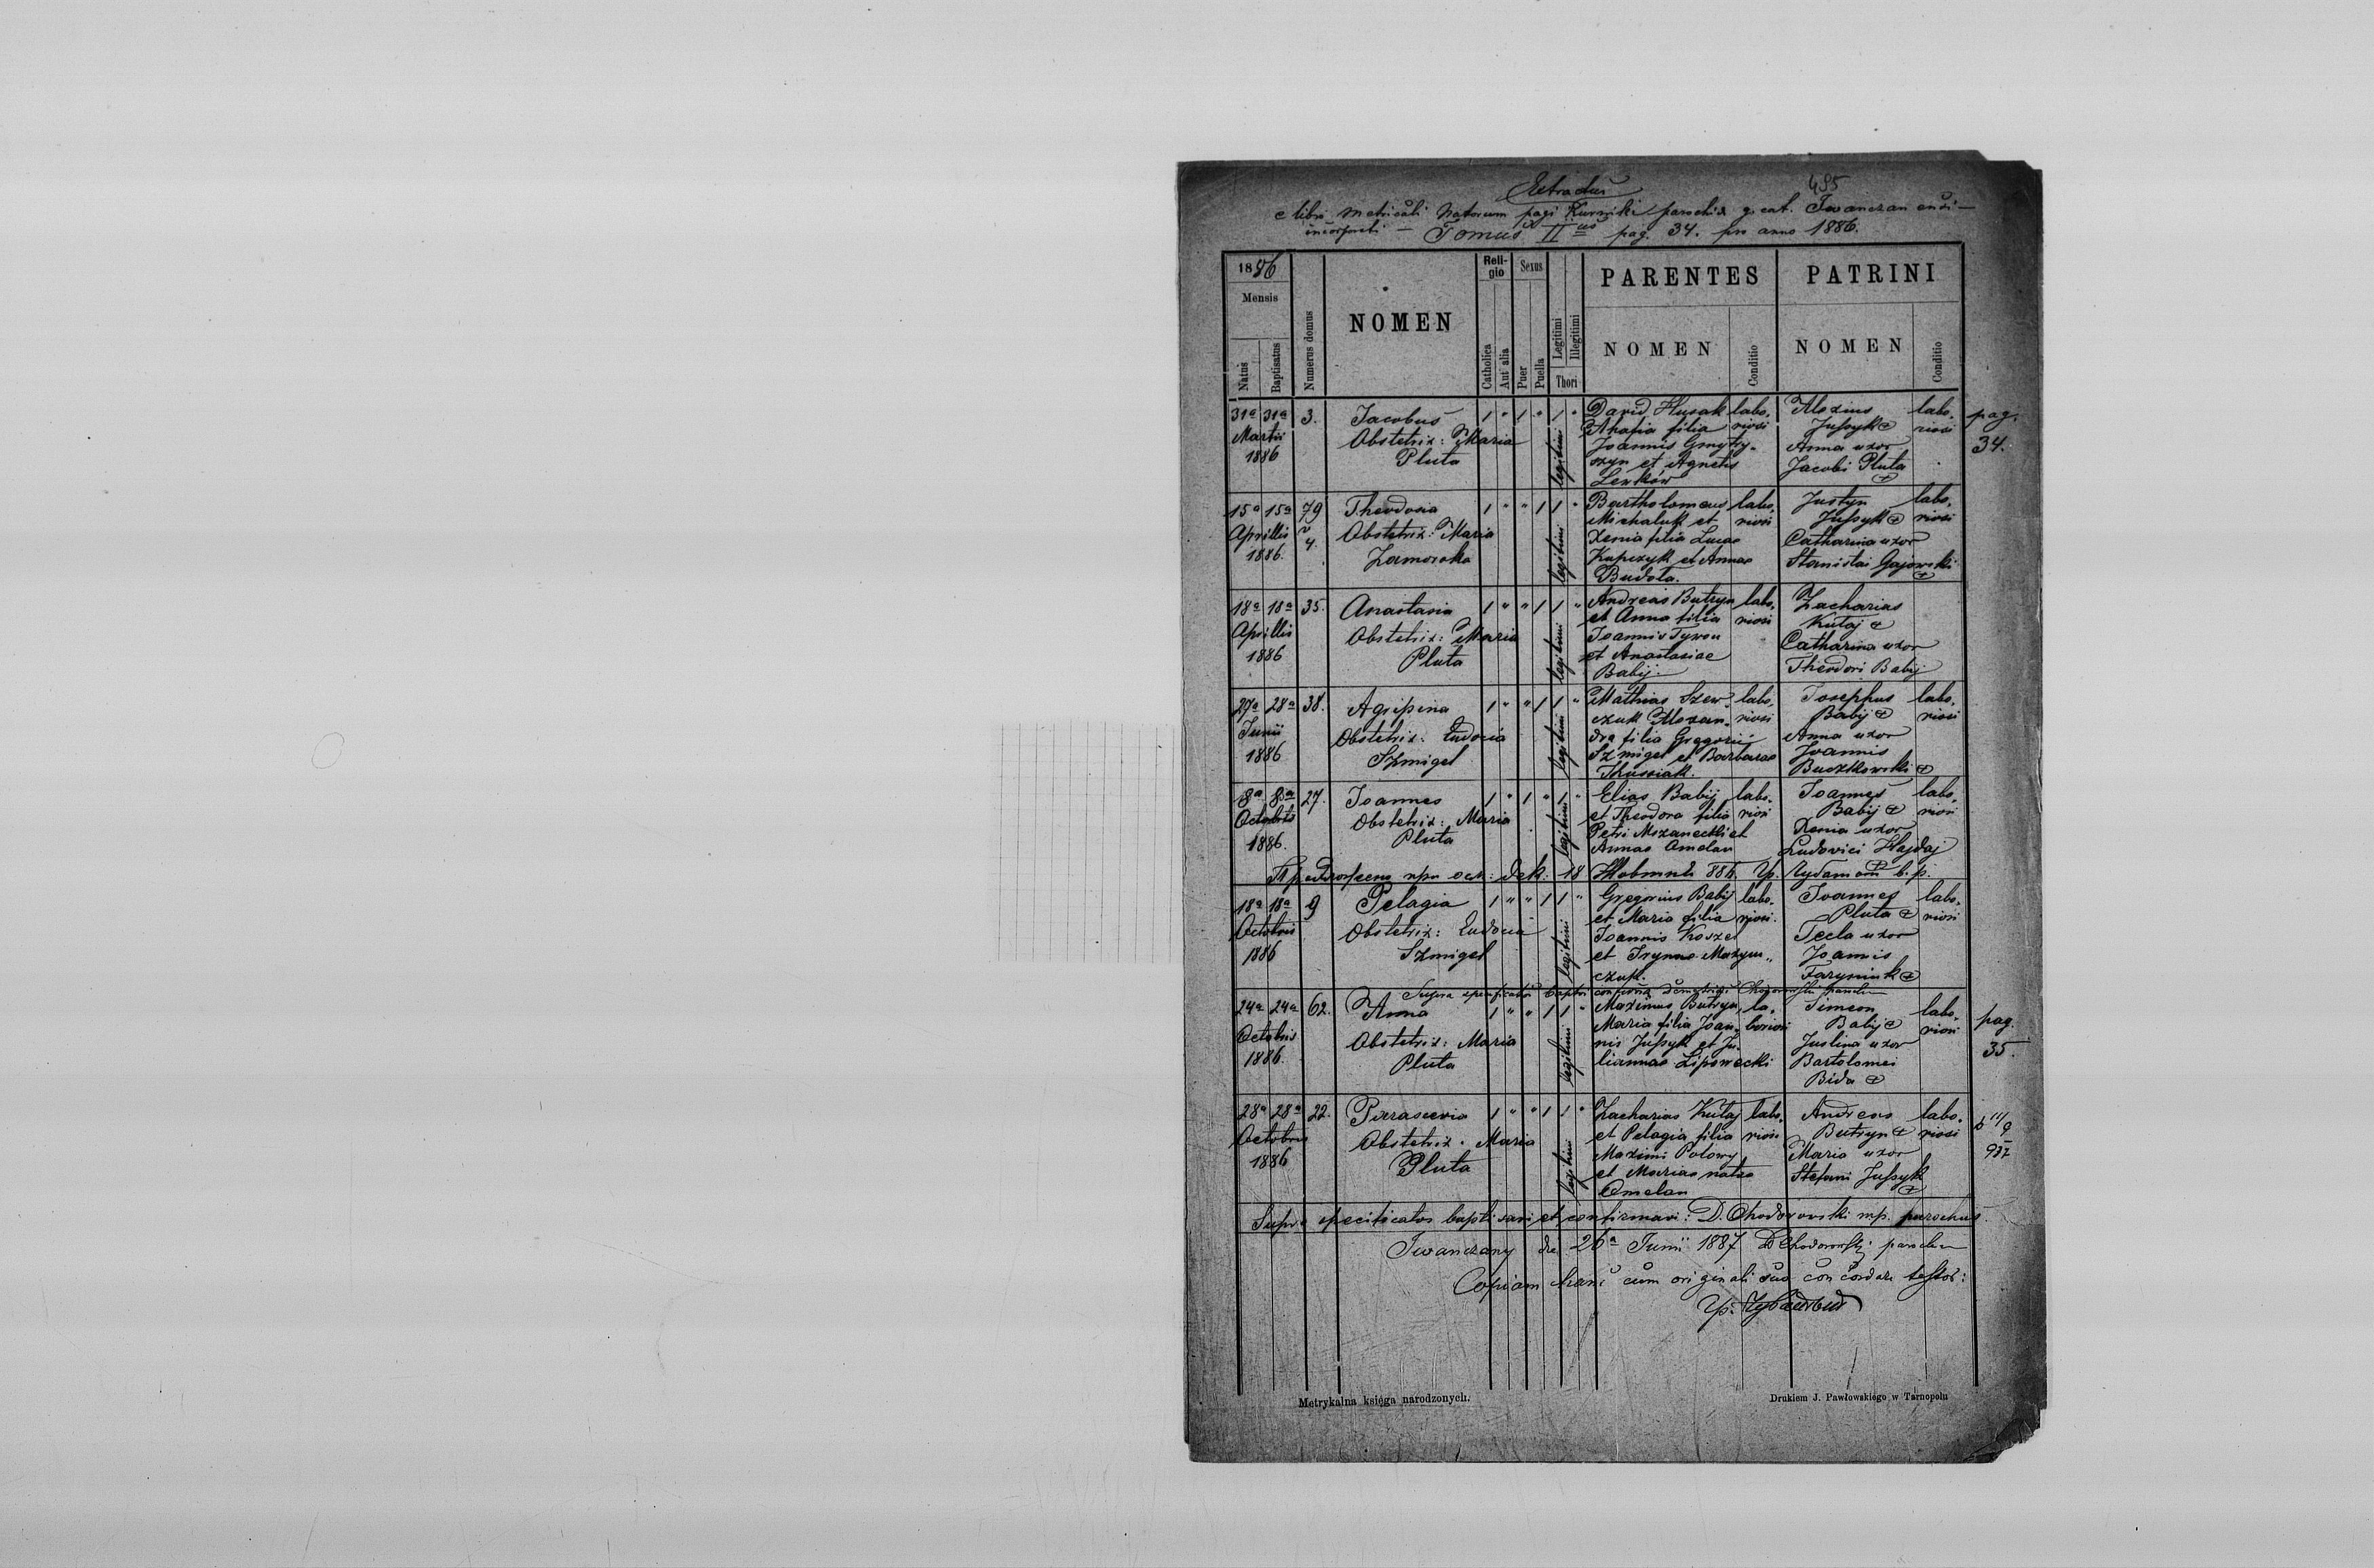 495
Extractus
e libro metricali Natorum pagi Kurniki parochiæ g. cat. Iwanczan
incorporati — Tomus II pag. 34. pro anno 1886.
1886
Mensis
Natus
Baptisatus
Numerus domus
NOMEN
Reli-
gio
Catholica
Aut alia
Sexus
Puer
Puella
Legitimi
Illegitimi
Thori
PARENTES
NOMEN
Conditio
PATRINI
NOMEN
Conditio
31a 31a
Martii
1886
3.
Jacobus
Obstetrix: Maria
Pluta
1 " 1 " 1 "
legitimi
David Husak
Ahafia filia
Joannis Gmytry-
szyn et Agnetis
Lenków
labo-
riosi
Alexius
Jussyk
Anna uxor
Jacobi Pluta
labo-
riosi
pag.
34.
15a 15a
Aprillis
1886.
79
4.
Theodosia
Obstetrix: Maria
Zamorska
1 " " 1 1 "
legitimi
Bartholomeus
Michaluk et
Xenia filia Lucae
Kupczyk et Annae
Budola.
labo-
riosi
Justyn
Jussyk
Catharina uxor
Stanislai Gajowski
labo-
riosi
18a 18a
Aprillis
1886
35.
Anastasia
Obstetrix: Maria
Pluta
1 " " 1 1 "
legitimi
Andreas Butryn
et Anna filia
Joannis Tyron
et Anastasiae
Babij.
labo-
riosi
Zacharias
Kutaj
Catharina uxor
Theodori Babij
27a 28a
Junii
1886
38.
Agripina
Obstetrix: Eudocia
Szmigel
1 " " 1 1 "
legitimi
Mathias Szew-
czuk Alexan-
dra filia Gregorii
Szmigel et Barbarae
labo-
riosi
Josephus
Babij
Anna uxor
Joannis
Buczkowski
labo-
riosi
8a 8a
Octobris
1886.
27.
Joannes
Obstetrix: Maria
Pluta
1 " 1 " 1 "
legitimi
Elias Babij
et Theodora filia
Petri Mszanecki et
Annae Omelan
labo-
riosi
Joannes
Babij
Xenia uxor
Ludovici Hajdaj
labo-
riosi
18a 18a
Octobris
1886
9
Pelagia
Obstetrix: Eudocia
Szmigel
1 " " 1 1 "
legitimi
Gregorius Babij
et Maria filia
Joannis Koszel
et Irynae Mazym-
czuk.
labo-
riosi.
Joannes
Pluta
Tecla uxor
Joannis
Faryniuk
labo-
riosi
24a 24a
Octobris
1886.
62.
Anna
Obstetrix: Maria
Pluta
1 " " 1 1 "
legitimi
Maximus Butryn,
Maria filia Joan-
nis Jussyk et Ju-
liannae Lipowecki
la-
boriosi
Simeon
Babij
Justina uxor
Bartolomei
Bida
labo-
riosi
pag.
35.
28a 28a
Octobris
1886
22.
Parascevia
Obstetrix. Maria
Pluta
1 " " 1 1 "
legitimi
Zacharias Kutaj
et Pelagia filia
Maximi Polowy
et Mariae natae
Omelan
labo-
riosi
Andreas
Butryn
Maria uxor
Stefani Jussyk
labo-
riosi
Supra specificatos baptisavi et confirmavi: D. Chodorowski mp. parochus
Iwanczany die 26a Junii 1887 D Chodorowski parochus
Copiam hanc cum originali suo concordare testor:
Metrykalna księga narodzonych.
Drukiem J. Pawłowskiego w Tarnopolu